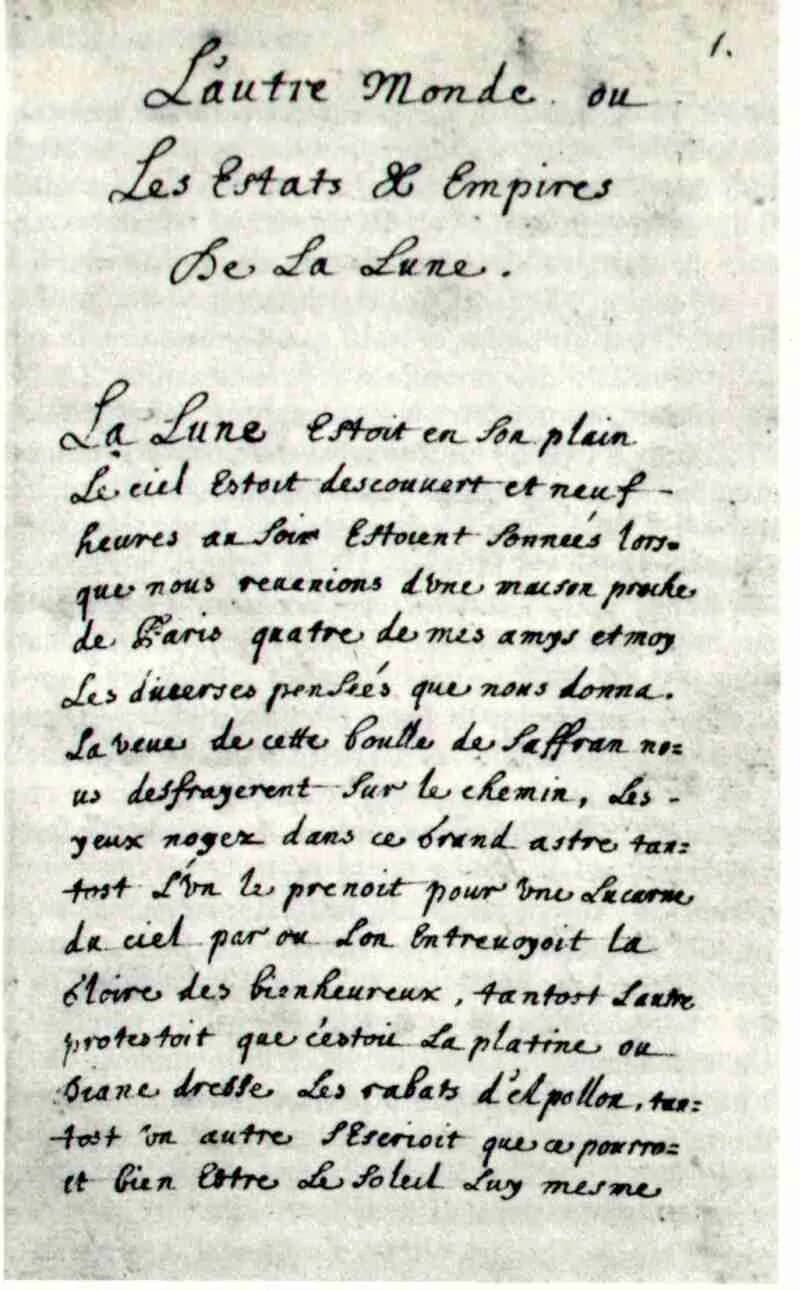 1.
L'autre Monde ou
Les Estats & Empires
De La Lune.
La Lune Estoit en son plain
Le ciel Estoit descouuert et neuf-
heures au soir Estoient sonneés lors-
que nous reuenions d'vne maison proche
de Paris quatre de mes amys et moy
Les diuerses penseés que nous donna.
La veue de cette boulle de saffran no=
us desfrayerent sur le chemin, Les -
yeux noyez dans ce Grand astre tan=
tost L'vn le prenoit pour vne Lucarne
du ciel par ou Lon Entreuoyoit la
Gloire des bienheureux, tantost Lautre
protestoit que c'estoit La platine ou
Diane dresse Les rabats d'Apollon, tan=
tost vn autre s'Escrioit que ce pourro=
it bien Estre Le soleil Luy mesme